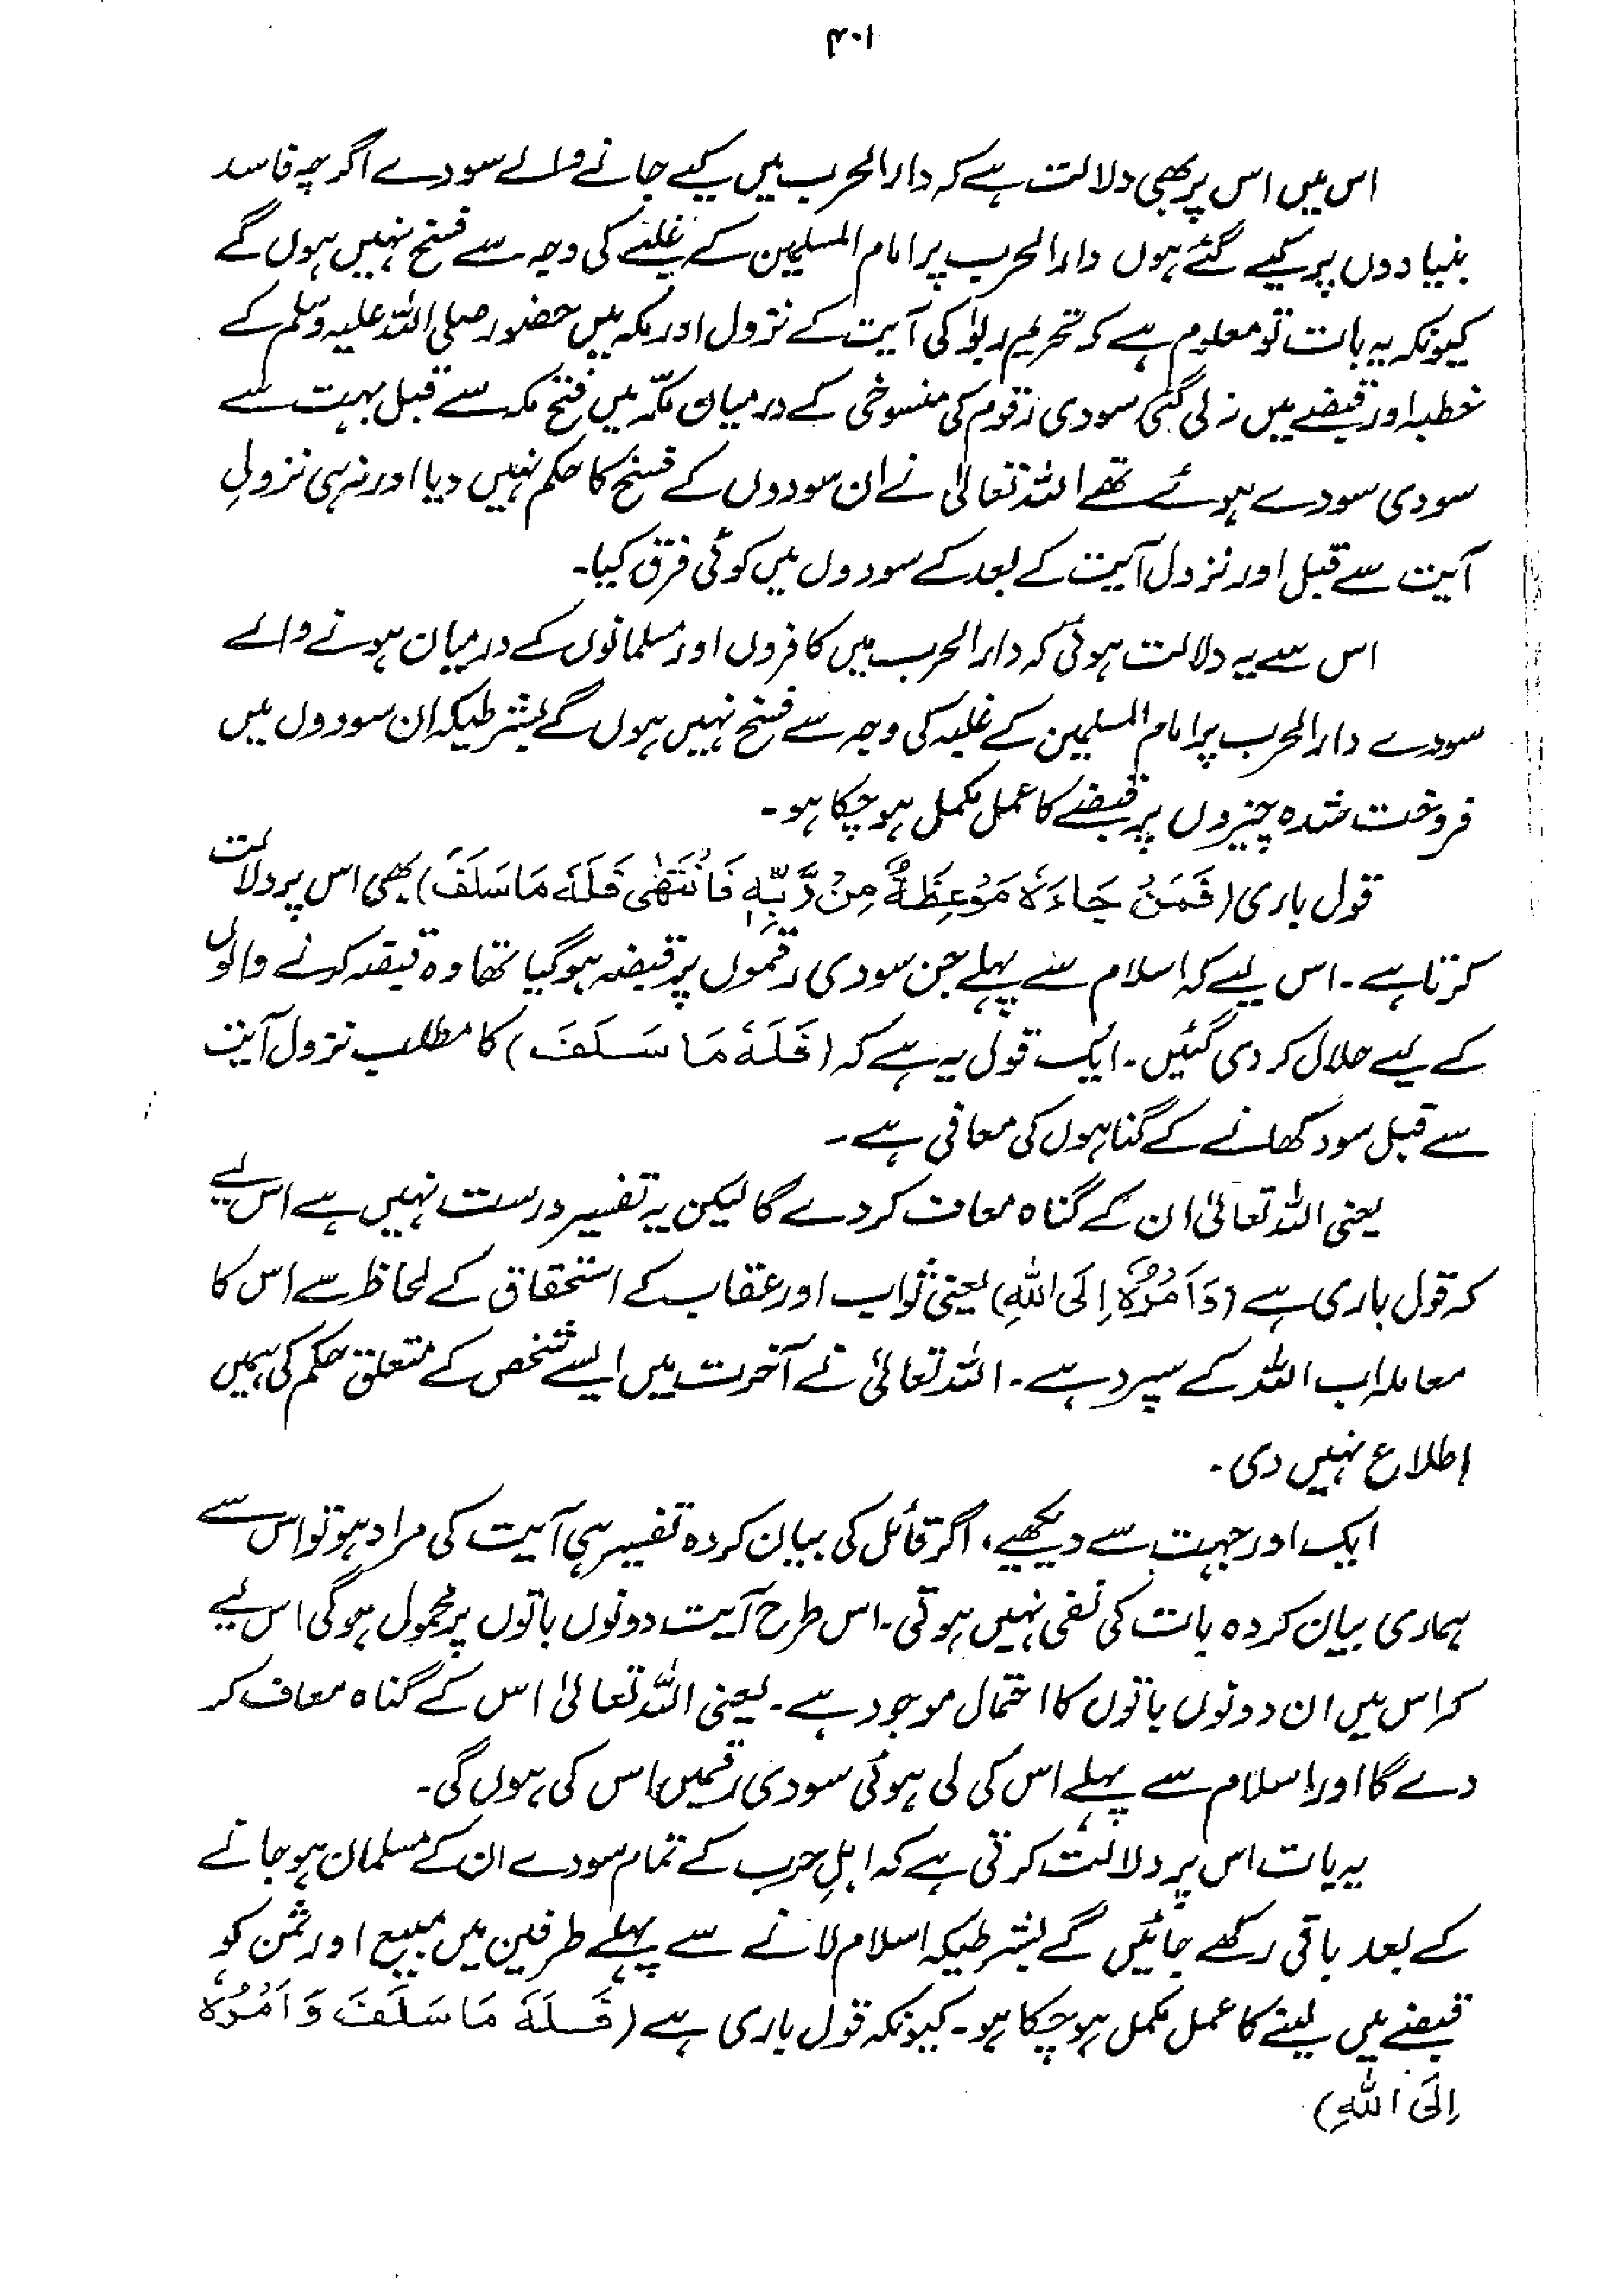 ۴۰۱
اس میں اس پر بھی دلالت ہے کہ دارالحرب میں کیے جانے والے سودے اگرچہ فاسد
بنیادوں پر کیے گئے ہوں دارالحرب پر امام المسلمین کے غلبے کی وجہ سے فسخ نہیں ہوں گے
کیونکہ یہ بات تو معلوم ہے کہ تحریم ربوٰ کی آیت کے نزول اور مکہ میں حضور صلی اللہ علیہ وسلم کے
خطبہ اور قبضے میں نہ لی گئی سودی رقوم کی منسوخی کے درمیان مکّہ میں فتح مکہ سے قبل بہت سے
سودی سودے ہوئے تھے اللہ تعالیٰ نے ان سودوں کے فسخ کا حکم نہیں دیا اور نہ ہی نزولِ
آیت سے قبل اور نزول آیت کے بعد کے سودوں میں کوئی فرق کیا۔
اس سے یہ دلالت ہوئی کہ دارالحرب میں کافروں اور مسلمانوں کے درمیان ہونے والے
سودے دارالحرب پر امام المسلمین کے غلبہ کی وجہ سے فسخ نہیں ہوں گے بشرطیکہ ان سودوں میں
فروخت شدہ چیزوں پر قبضے کا عمل مکمل ہو چکا ہو۔
قول باری (فَمَنْ جَاءَہٗ مَوْعِظَۃٌ مِنْ رَّبِّہٖ فَانْتَھٰی فَلَہٗ مَا سَلَفَ) بھی اس پر دلالت
کرتا ہے۔ اس لیے کہ اسلام سے پہلے جن سودی رقموں پر قبضہ ہو گیا تھا وہ قبضہ کرنے والوں
کے لیے حلال کر دی گئیں۔ ایک قول یہ ہے کہ (فَلَہٗ مَا سَلَفَ) کا مطلب نزول آیت
سے قبل سود کھانے کے گناہوں کی معافی ہے۔
یعنی اللہ تعالیٰ ان کے گناہ معاف کر دے گا لیکن یہ تفسیر درست نہیں ہے اس لیے
کہ قول باری ہے (وَاَمْرُہٗ اِلَی اللہِ) یعنی ثواب اور عقاب کے استحقاق کے لحاظ سے اس کا
معاملہ اب اللہ کے سپرد ہے۔ اللہ تعالیٰ نے آخرت میں ایسے شخص کے متعلق حکم کی ہمیں
اطلاع نہیں دی۔
ایک اور جہت سے دیکھیے، اگر قائل کی بیان کردہ تفسیر ہی آیت کی مراد ہو تو اس سے
ہماری بیان کردہ بات کی نفی نہیں ہوتی۔ اس طرح آیت دونوں باتوں پر محمول ہوگی اس لیے
کہ اس میں ان دونوں باتوں کا احتمال موجود ہے۔ یعنی اللہ تعالیٰ اس کے گناہ معاف کر
دے گا اور اسلام سے پہلے اس کی لی ہوئی سودی رقمیں اس کی ہوں گی۔
یہ بات اس پر دلالت کرتی ہے کہ اہلِ حرب کے تمام سودے ان کے مسلمان ہو جانے
کے بعد باقی رکھے جائیں گے بشرطیکہ اسلام لانے سے پہلے طرفین میں مبیع اور ثمن کو
قبضے میں لینے کا عمل مکمل ہو چکا ہو۔ کیونکہ قول باری ہے (فَلَہٗ مَا سَلَفَ وَاَمْرُہٗ
اِلَی اللہِ)